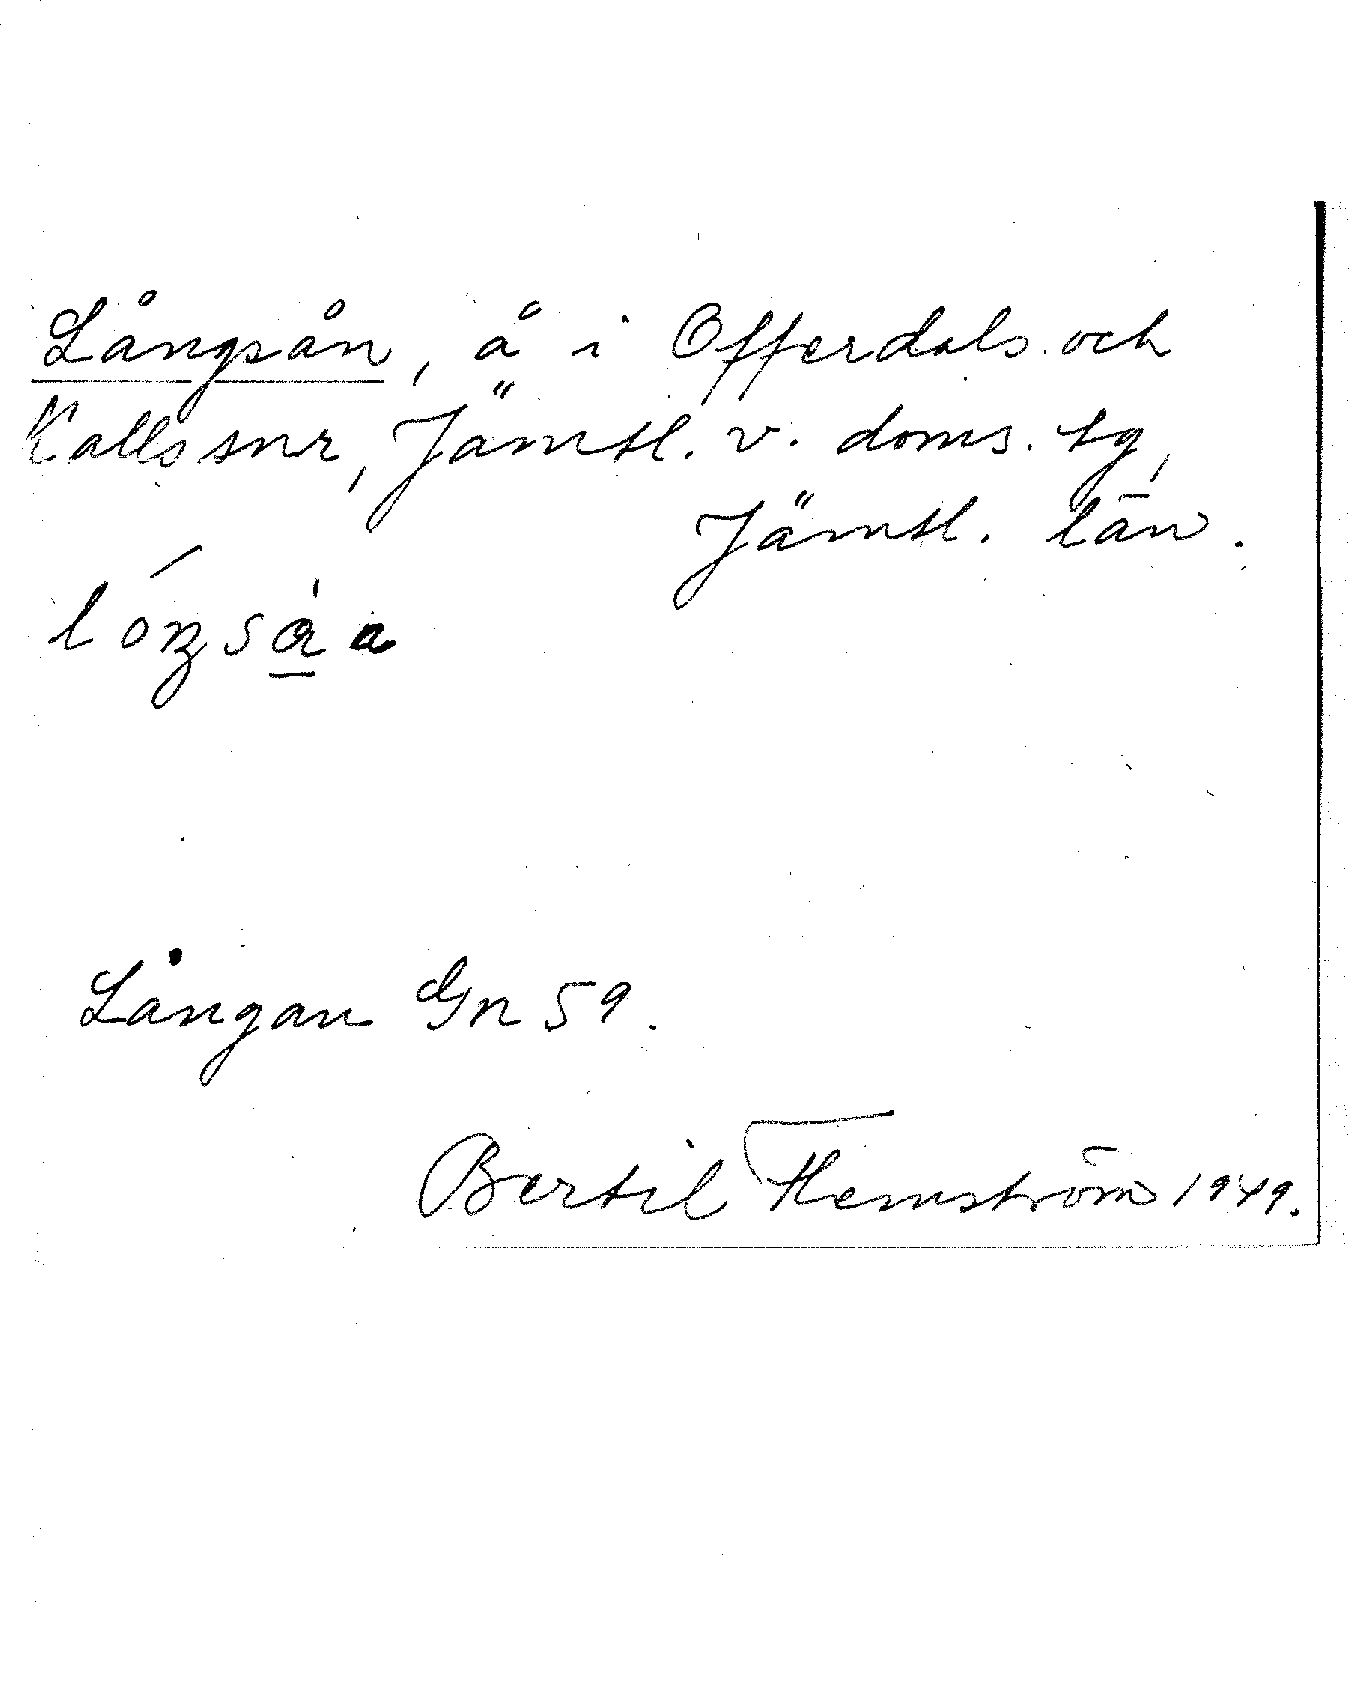 Långsån, å i Offerdals och
Kalls snr, Jämtl. v. doms. tg,
Jämtl. län.
Långan Gn 59.
Bertil Flemström 1949.